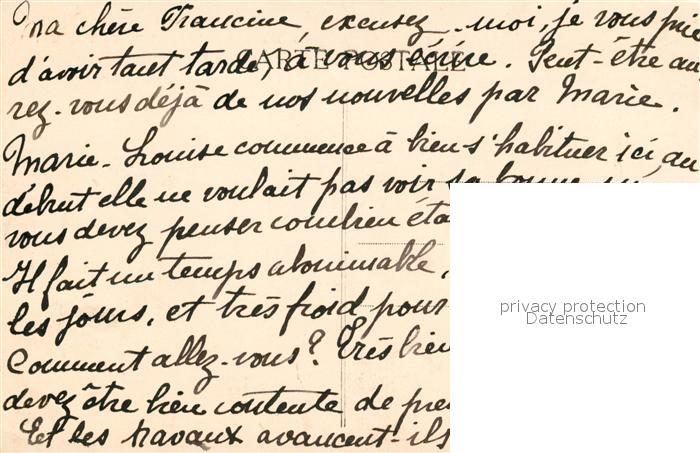 Ma chère Francine, excusez-moi, je vous prie
CARTE POSTALE
d'avoir tant tardé, à vous écrire. Peut-être au
rez-vous déjà de nos nouvelles par Marie.
Marie-Louise commence à bien s'habituer ici, au
début elle ne voulait pas voir sa bonne,
vous devez penser combien éta
Il fait un temps abominable,
les jours, et très froid pour
privacy protection
Datenschutz
Comment allez-vous? Très bien
devez être bien contente de pre
Et les travaux avancent-ils